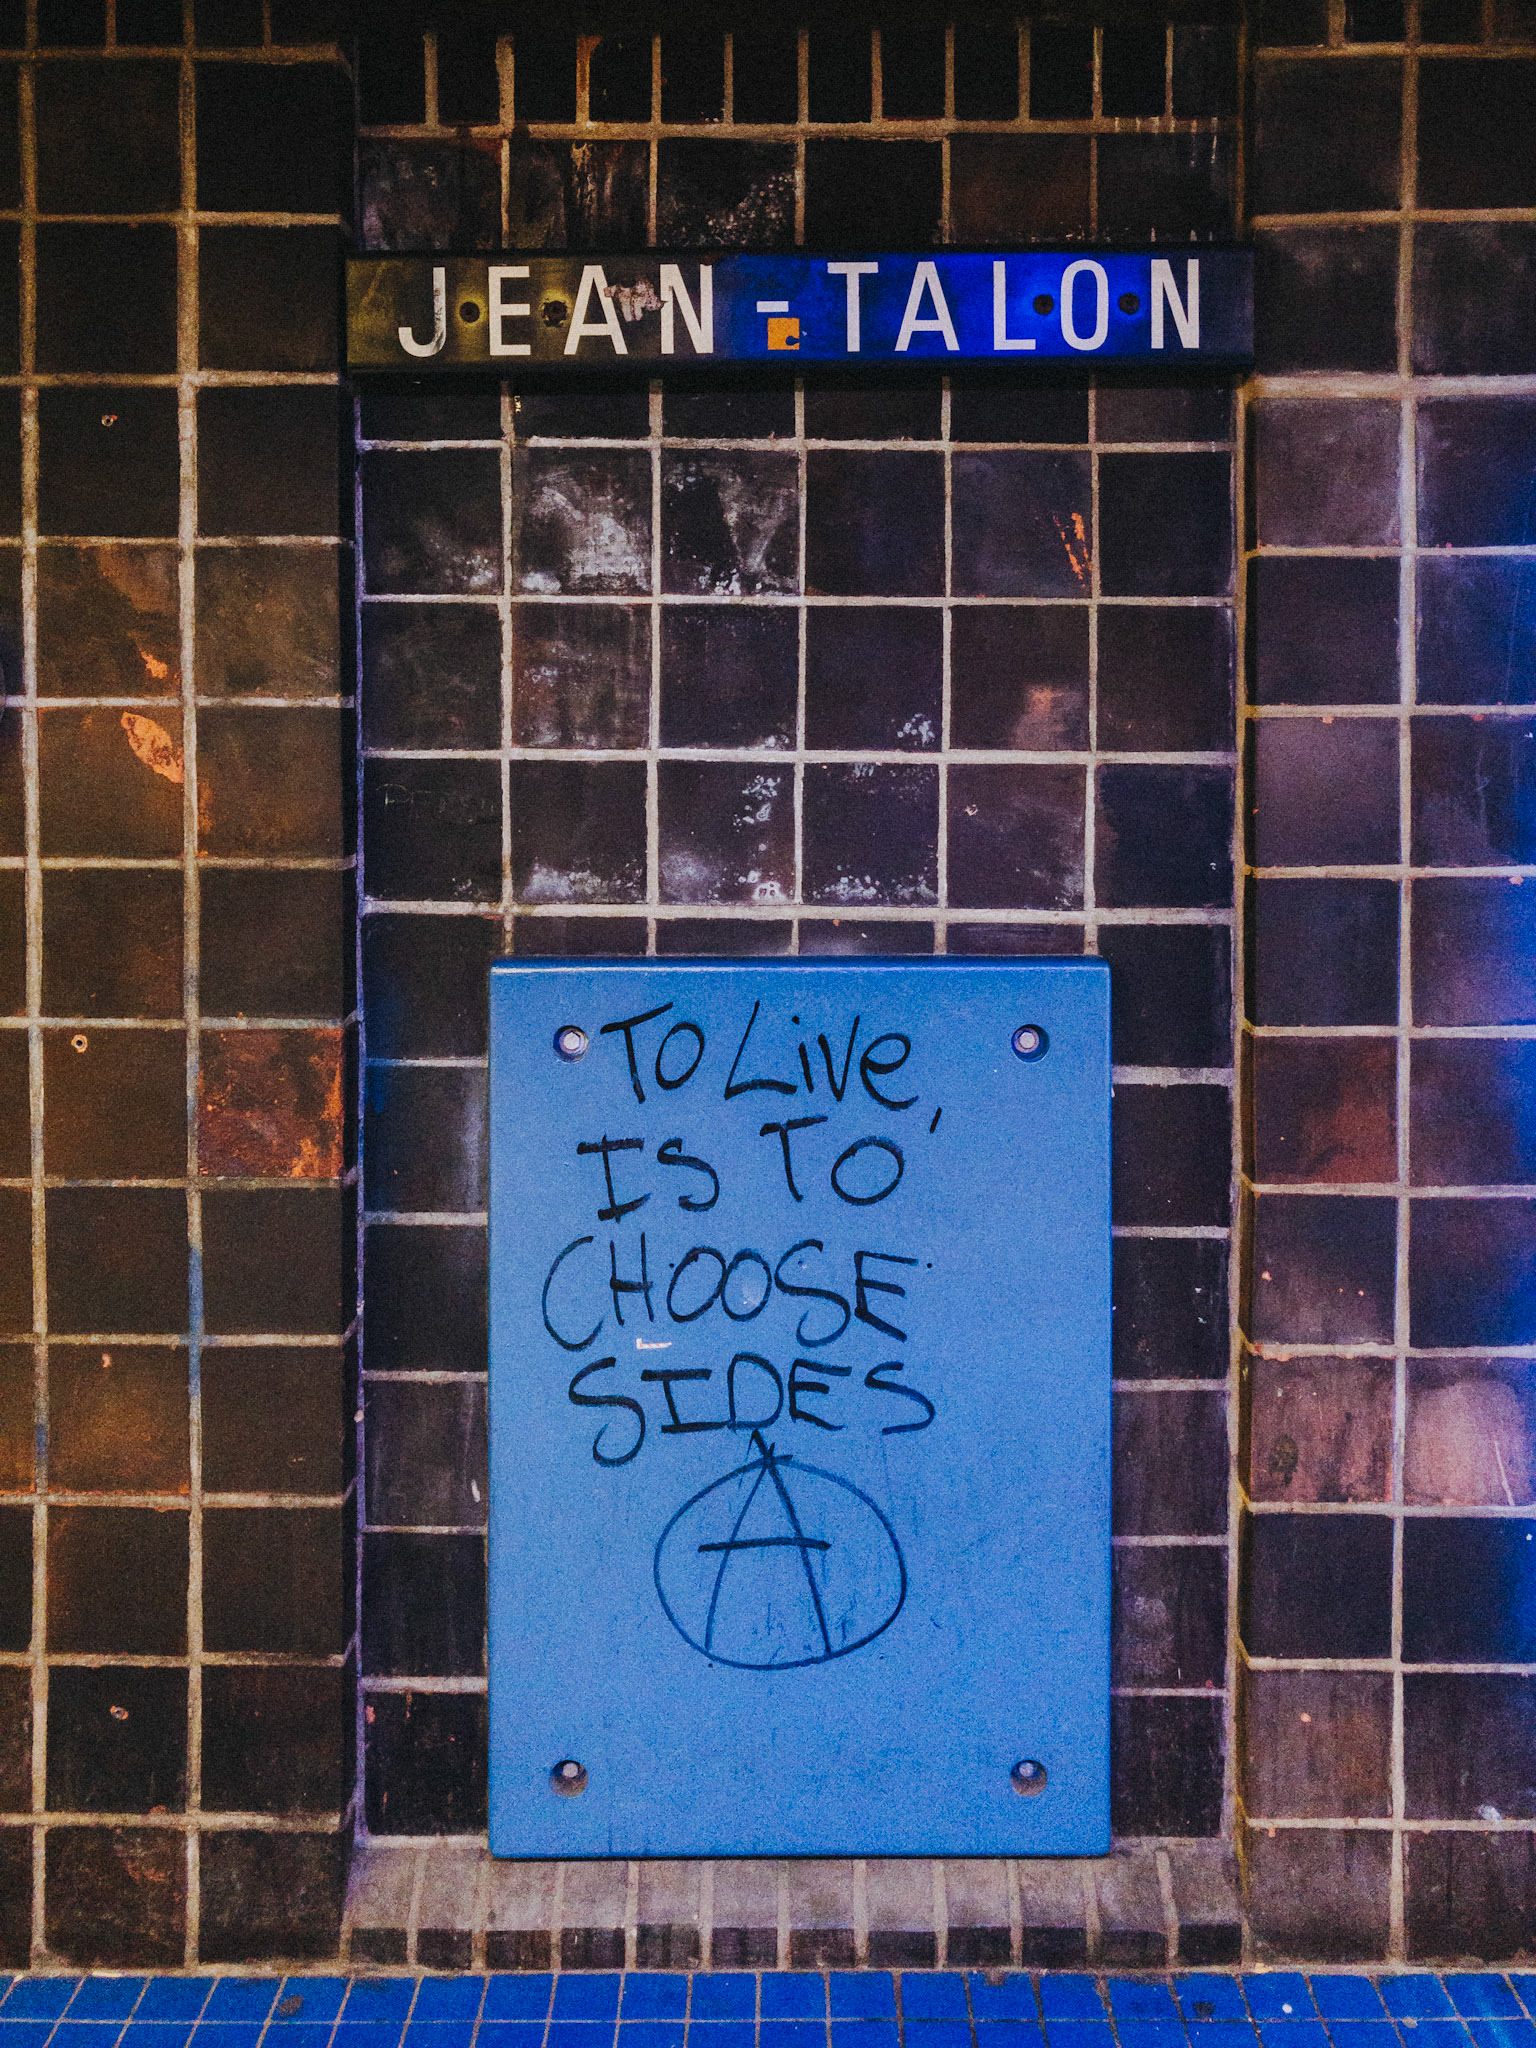 JEAN-TALON
To Live,
IS TO
CHOOSE
SIDES
A